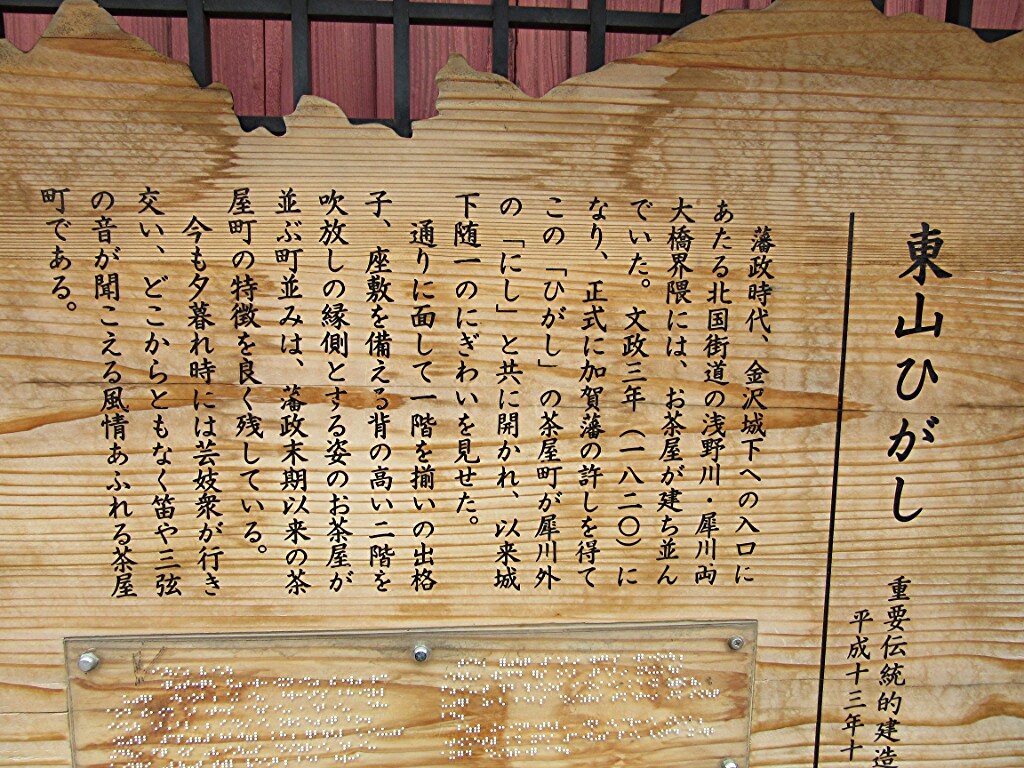 東山ひがし
重要伝統的建造
平成十三年十
藩政時代、金沢城下への入口に
あたる北国街道の浅野川・犀川両
大橋界隈には、お茶屋が建ち並ん
でいた。文政三年（一八二〇）に
なり、正式に加賀藩の許しを得て
この「ひがし」の茶屋町が犀川外
の「にし」と共に開かれ、以来城
下随一のにぎわいを見せた。
通りに面して一階を揃いの出格
子、座敷を備える背の高い二階を
吹放しの縁側とする姿のお茶屋が
並ぶ町並みは、藩政末期以来の茶
屋町の特徴を良く残している。
今も夕暮れ時には芸妓衆が行き
交い、どこからともなく笛や三弦
の音が聞こえる風情あふれる茶屋
町である。